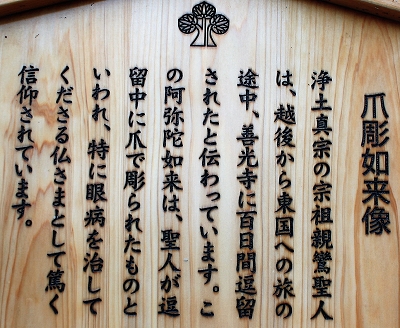 爪彫如来像
浄土真宗の宗祖親鸞聖人
は、越後から東国への旅の
途中、善光寺に百日間逗留
されたと伝わっています。こ
の阿弥陀如来は、聖人が逗
留中に爪で彫られたものと
いわれ、特に眼病を治して
くださる仏さまとして篤く
信仰されています。